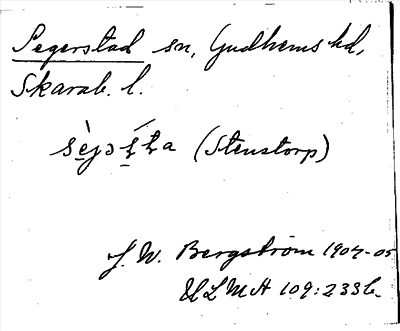 Segerstad sn, Gudhems hd,
Skarab. l.
(Stenstorp)
J. W. Bergström 1904-05
ULMA 109:233b